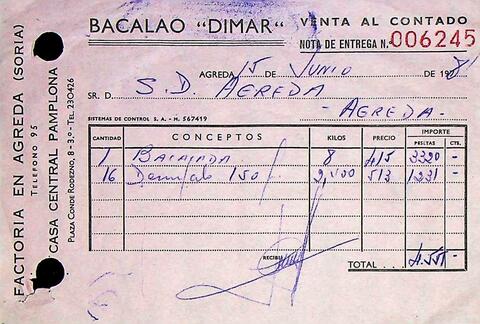 BACALAO "DIMAR"
VENTA AL CONTADO
NOTA DE ENTREGA N.º 006245
AGREDA 15 de Junio de 1981
SR. D. S.D. AGREDA
- AGREDA -
SISTEMAS DE CONTROL S. A. - M. 567419
CANTIDAD CONCEPTOS KILOS PRECIO IMPORTE
PESETAS CTS.
1 BACALADA 8 415 3320 -
16 150 2,400 513 1231 -
RECIBÍ
TOTAL . . . 4.551 -
FACTORIA EN AGREDA (SORIA)
TELEFONO 95
CASA CENTRAL PAMPLONA
PLAZA CONDE RODEZNO, 8 - 3.º - Tel. 230426